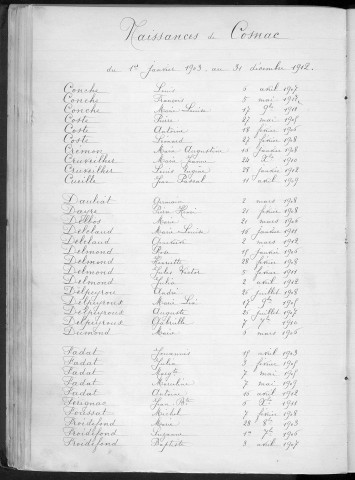 Naissances de Cosnac
du 1er Janvier 1903 au 31 décembre 1912.
Conche Louis 6 avril 1907
Conche François 5 mai 1912
Conche Marie Louise 17 9bre 1911
Coste Pierre 27 mai 1905
Coste Antoine 18 février 1906
Coste Léonard 27 février 1908
Crémon Marie Augustine 15 Janvier 1908
Cruveilher Marie Jeanne 24 Xbre 1910
Cruveilher Louis Eugène 28 janvier 1912
Cueille Jean Pascal 11 avril 1909
Dauliat 2 mars 1908
Dayre Pierre Henri 21 février 1908
Delbos Maria 21 mars 1906
Deleland Marie Louise 16 janvier 1911
Deleland 2 mars 1912
Delmond 19 janvier 1906
Delmond Henriette 28 février 1908
Delmond Jules Victor 5 février 1911
Delmond Julia 2 avril 1912
Delpeyrou André 25 juillet 1908
Delpeyroux Marie 17 9bre 1905
Delpeyroux Auguste 21 juillet 1907
Delpeyroux Gabrielle 7 7bre 1910
Dumond Marie 3 mars 1906
Fadat 19 avril 1903
Fadat Julia 3 février 1905
Fadat 7 mai 1905
Fadat Marceline 7 mai 1909
Fadat Antoine 15 avril 1912
Jean Bte 6 Xbre 1911
Michel 7 février 1908
Froidefond Maria 28 8bre 1903
Froidefond Suzanne 1er 7bre 1906
Froidefond Baptiste 3 avril 1907